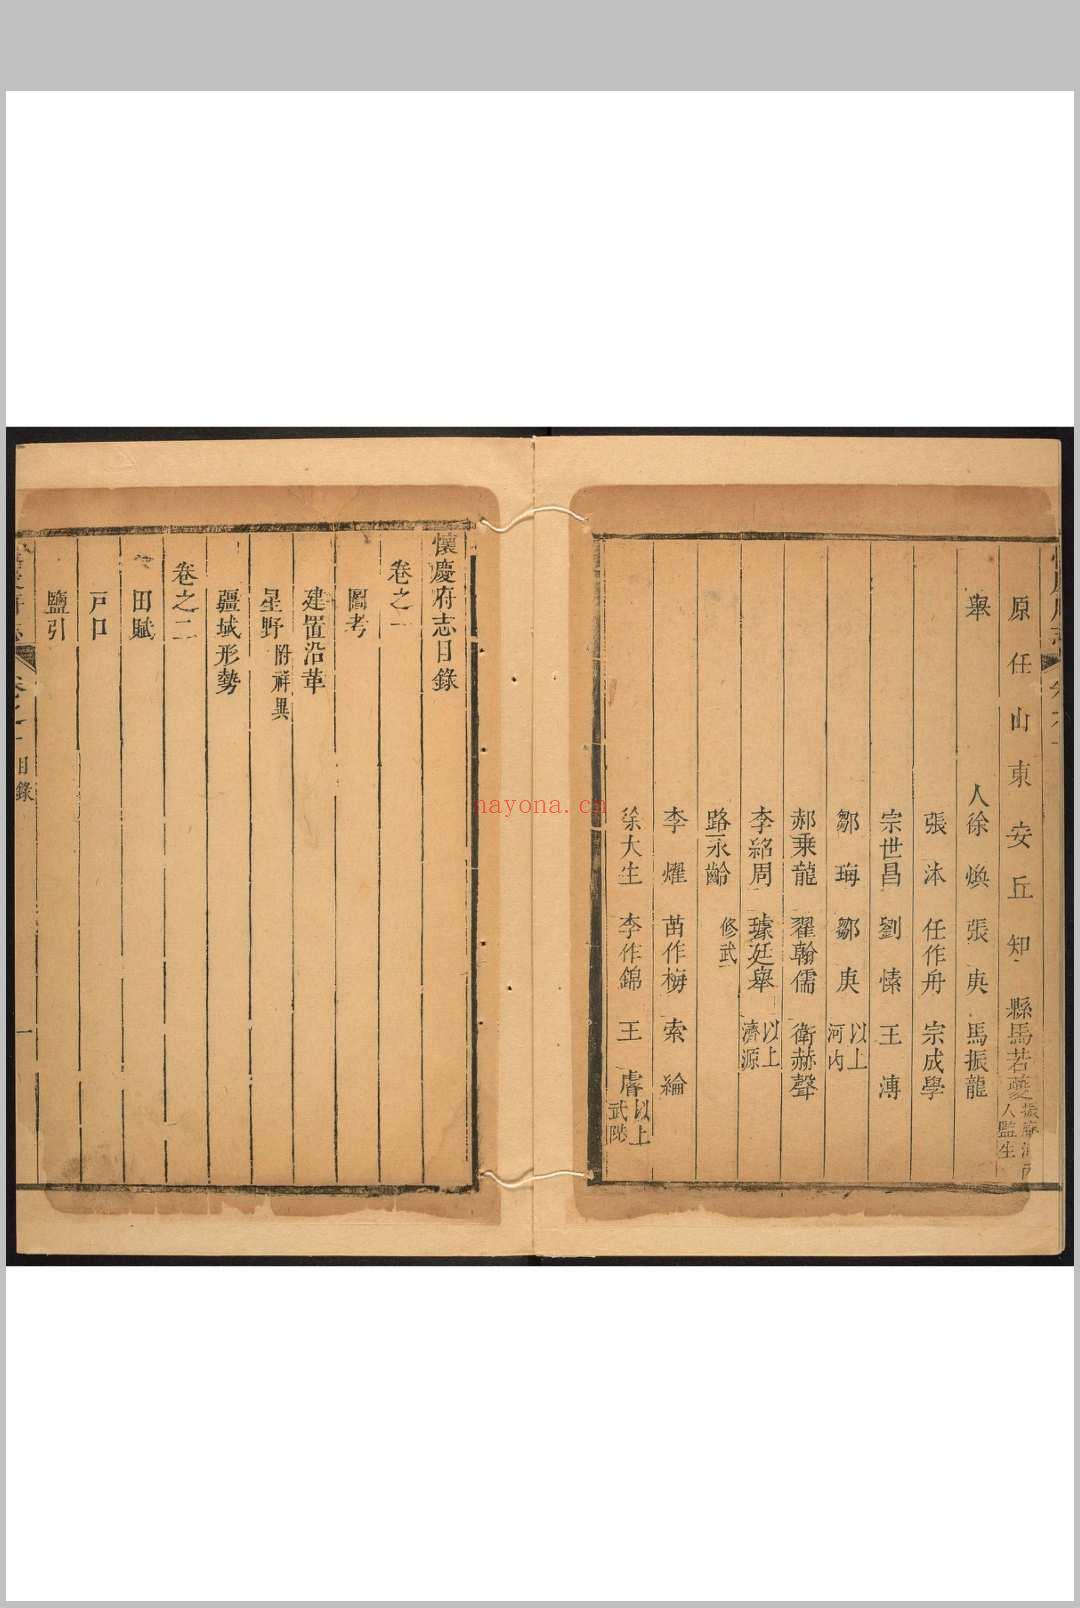 原任山東安丘知縣馬若夔
人監生
舉人徐煥 張庚 馬振龍
張沐 任作舟 宗成學
宗世昌 劉愫 王溥
鄒珻 鄒庚 以上河内
郝乗龍 翟翰儒 衛赫聲
李紹周 璩廷舉 以上濟源
路永齡 修武
李燿 苗作梅 索綸
徐大生 李作錦 王䐗 以上武陟
懷慶府志目錄
卷之一
圖考
建置沿革
星野 附祥異
疆域形勢
卷之二
田賦
戸口
鹽引
卷之一 目錄 一
nayona.cn